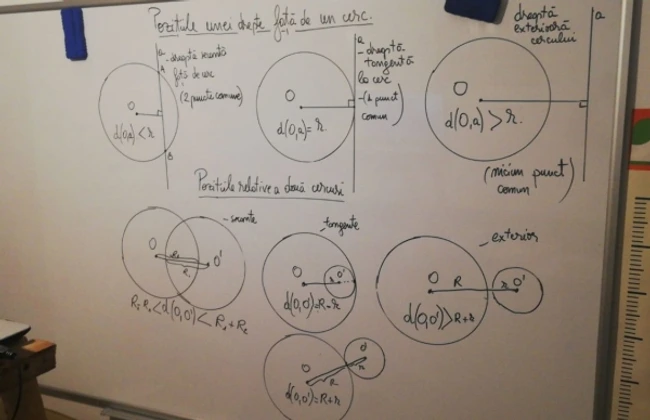 Pozițiile unei drepte față de un cerc.
a
- dreaptă secantă
A
față de cerc
(2 puncte comune)
O
d(O,a) < r
B
a
- dreaptă
tangentă
la cerc
- (1 punct
comun)
O
d(O,a) = r.
dreaptă
exterioară
cercului
a
O
d(O,a) > r.
(niciun punct
comun)
Pozițiile relative a două cercuri
- secante
O
O'
d(O,O') < R₁+R₂
- tangente
O
O'
d(O,O')=R-r
- exterior
O
R
r
O'
d(O,O')>R+r
O
R
r
O'
d(O,O')=R+r